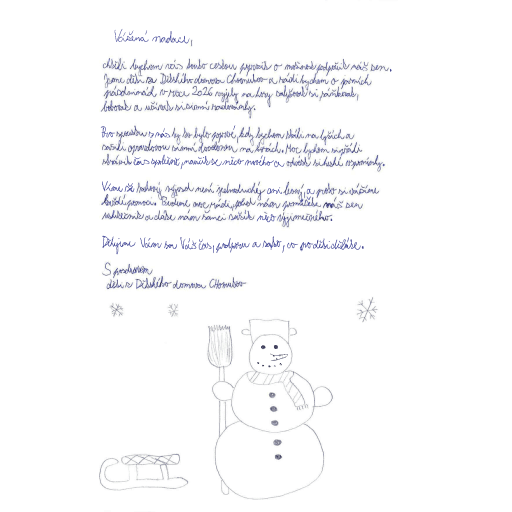 Vážená nadaci,
chtěli bychom vás touto cestou poprosit o možnost podpořit náš sen.
Jsme děti z Dětského domova Chomutov a rádi bychom o jarních
prázdninách v roce 2026 vyjely na hory zalyžovat si, sáňkovat,
bobovat a užívat si zimní radovánky.
Pro spoustu z nás by to bylo poprvé, kdy bychom stáli na lyžích a
zažili opravdovou zimní dovolenou na horách. Moc bychom si přáli
strávit čas společně, naučit se něco nového a odvézt si hezké vzpomínky.
Víme že takový výjezd není jednoduchý ani levný, a proto si vážíme
každé pomoci. Budeme moc rádi, pokud nám pomůžete náš sen
uskutečnit a dáte nám šanci zažít něco výjimečného.
Děkujeme Vám za Váš čas, podporu a za to, co pro děti děláte.
S pozdravem
děti z Dětského domova Chomutov